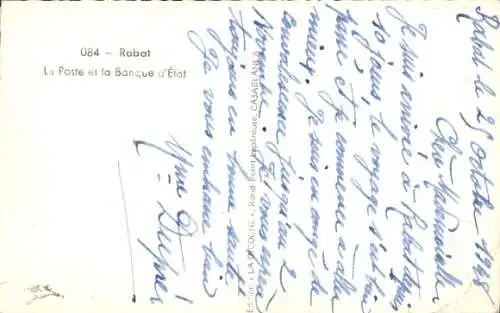 084 - Rabat
La Poste et la Banque d'État
Edition « LA CIGOGNE », Rond-Point Lapérouse, CASABLANCA
Rabat le 25 Octobre 1948
Chère Mademoiselle
Je suis arrivée à Rabat depuis
10 jours, le voyage s'est bien
passé et je commence à aller
mieux. Je suis en congé de
convalescence jusqu'au 2
Novembre. J'espère
toujours en bonne santé
Je vous embrasse bien
Mme Dupré